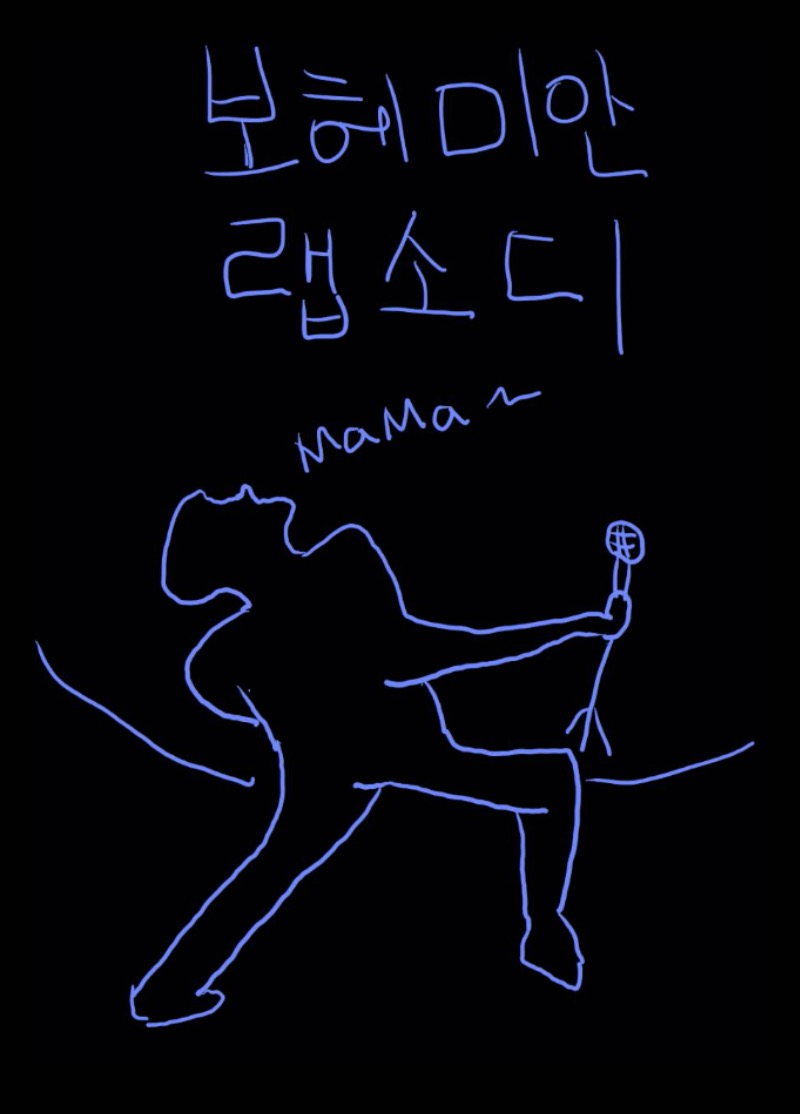 보헤미안
랩소디
MaMa~